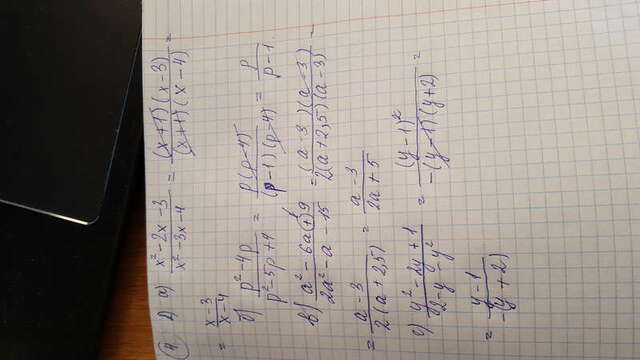 4) 1) а) (x² - 2x - 3)/(x² - 3x - 4) = ((x+1)(x-3))/((x+1)(x-4)) =
= (x-3)/(x-4)
б) (p² - 4p)/(p² - 5p + 4) = (p(p-4))/((p-1)(p-4)) = p/(p-1)
в) (a² - 6a + 9)/(2a² - a - 15) = ((a-3)(a-3))/(2(a+2,5)(a-3)) =
= (a-3)/(2(a+2,5)) = (a-3)/(2a+5)
с) (y² - 2y + 1)/(2 - y - y²) = (y-1)²/(-(y-1)(y+2)) =
= (y-1)/(-(y+2))